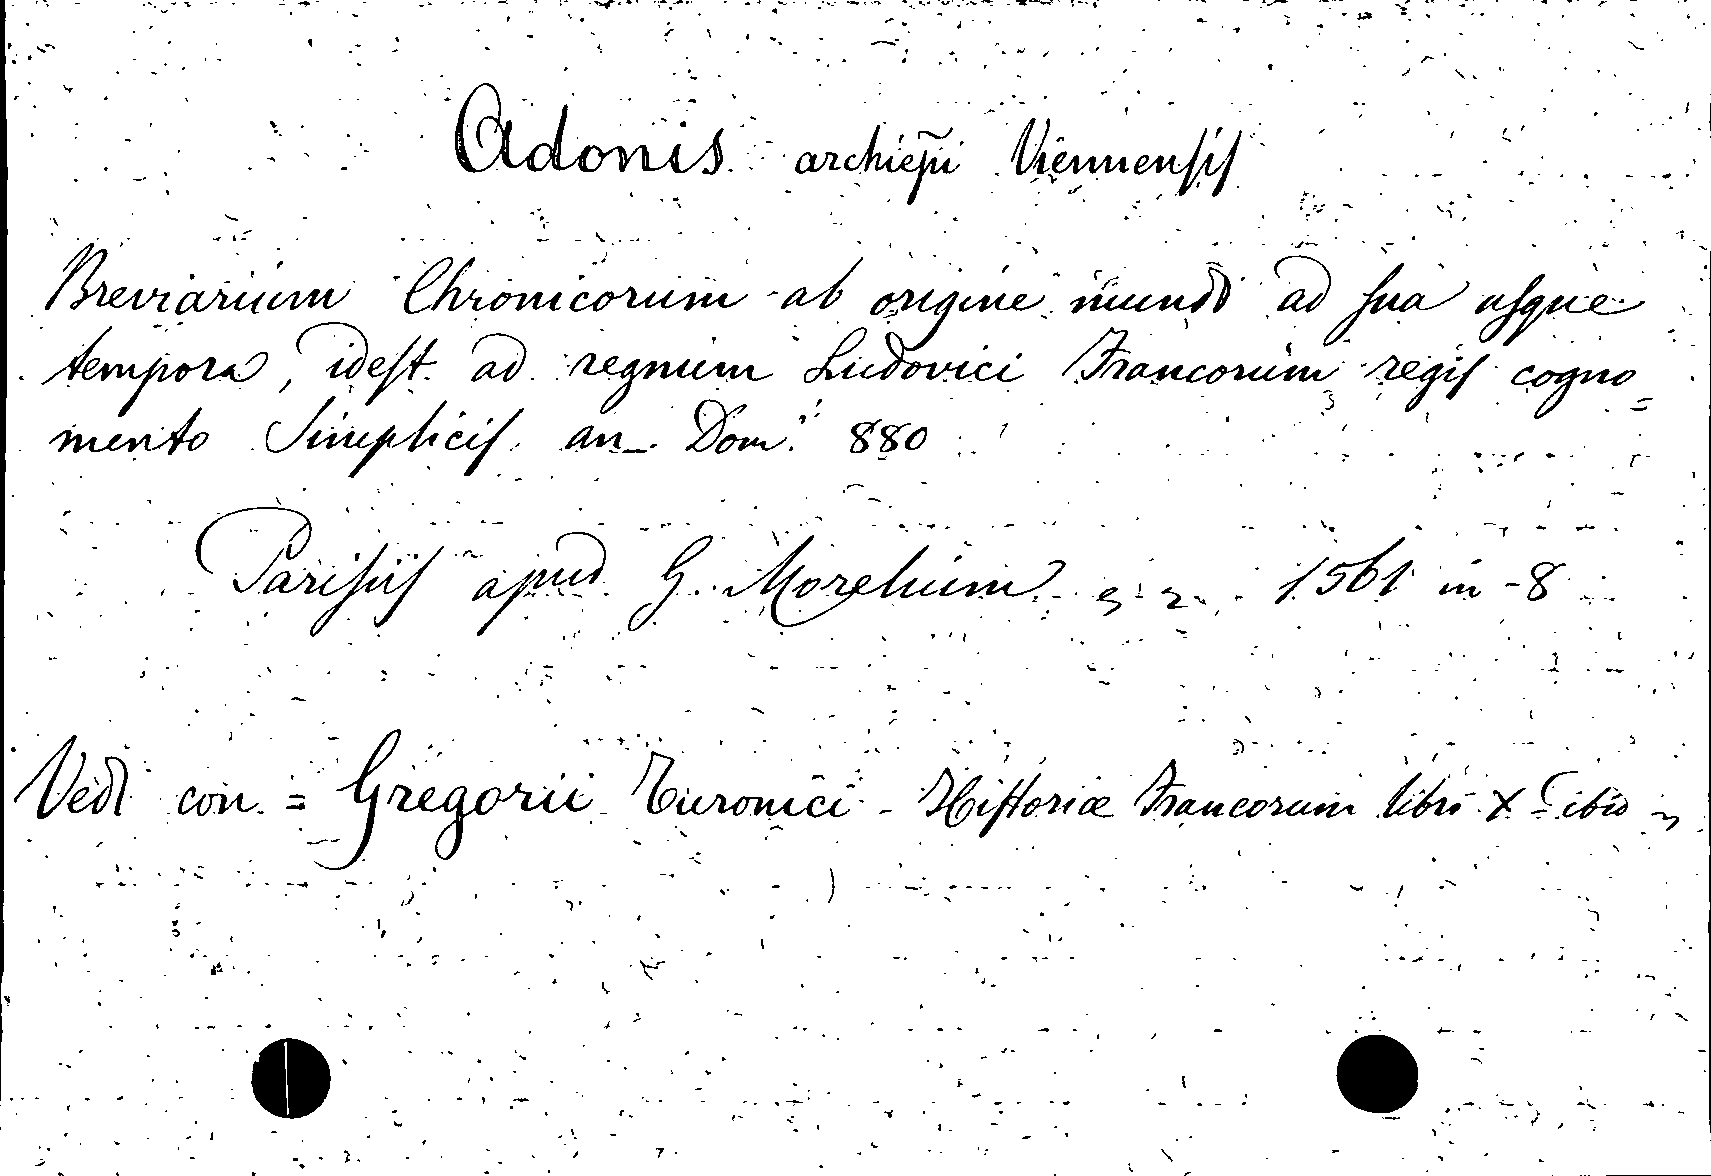 Adonis archiep̃i Viennensis
Breviarium Chronicorum ab origine mundi ad sua usque
tempora, idest ad regnum Ludovici Francorum regis cogno=
mento Simplicis an. Dom. 880
Parisiis apud G. Morelium 1561 in-8
Vedi con = Gregorii Turonici - Historiæ Francorum libri X ibid